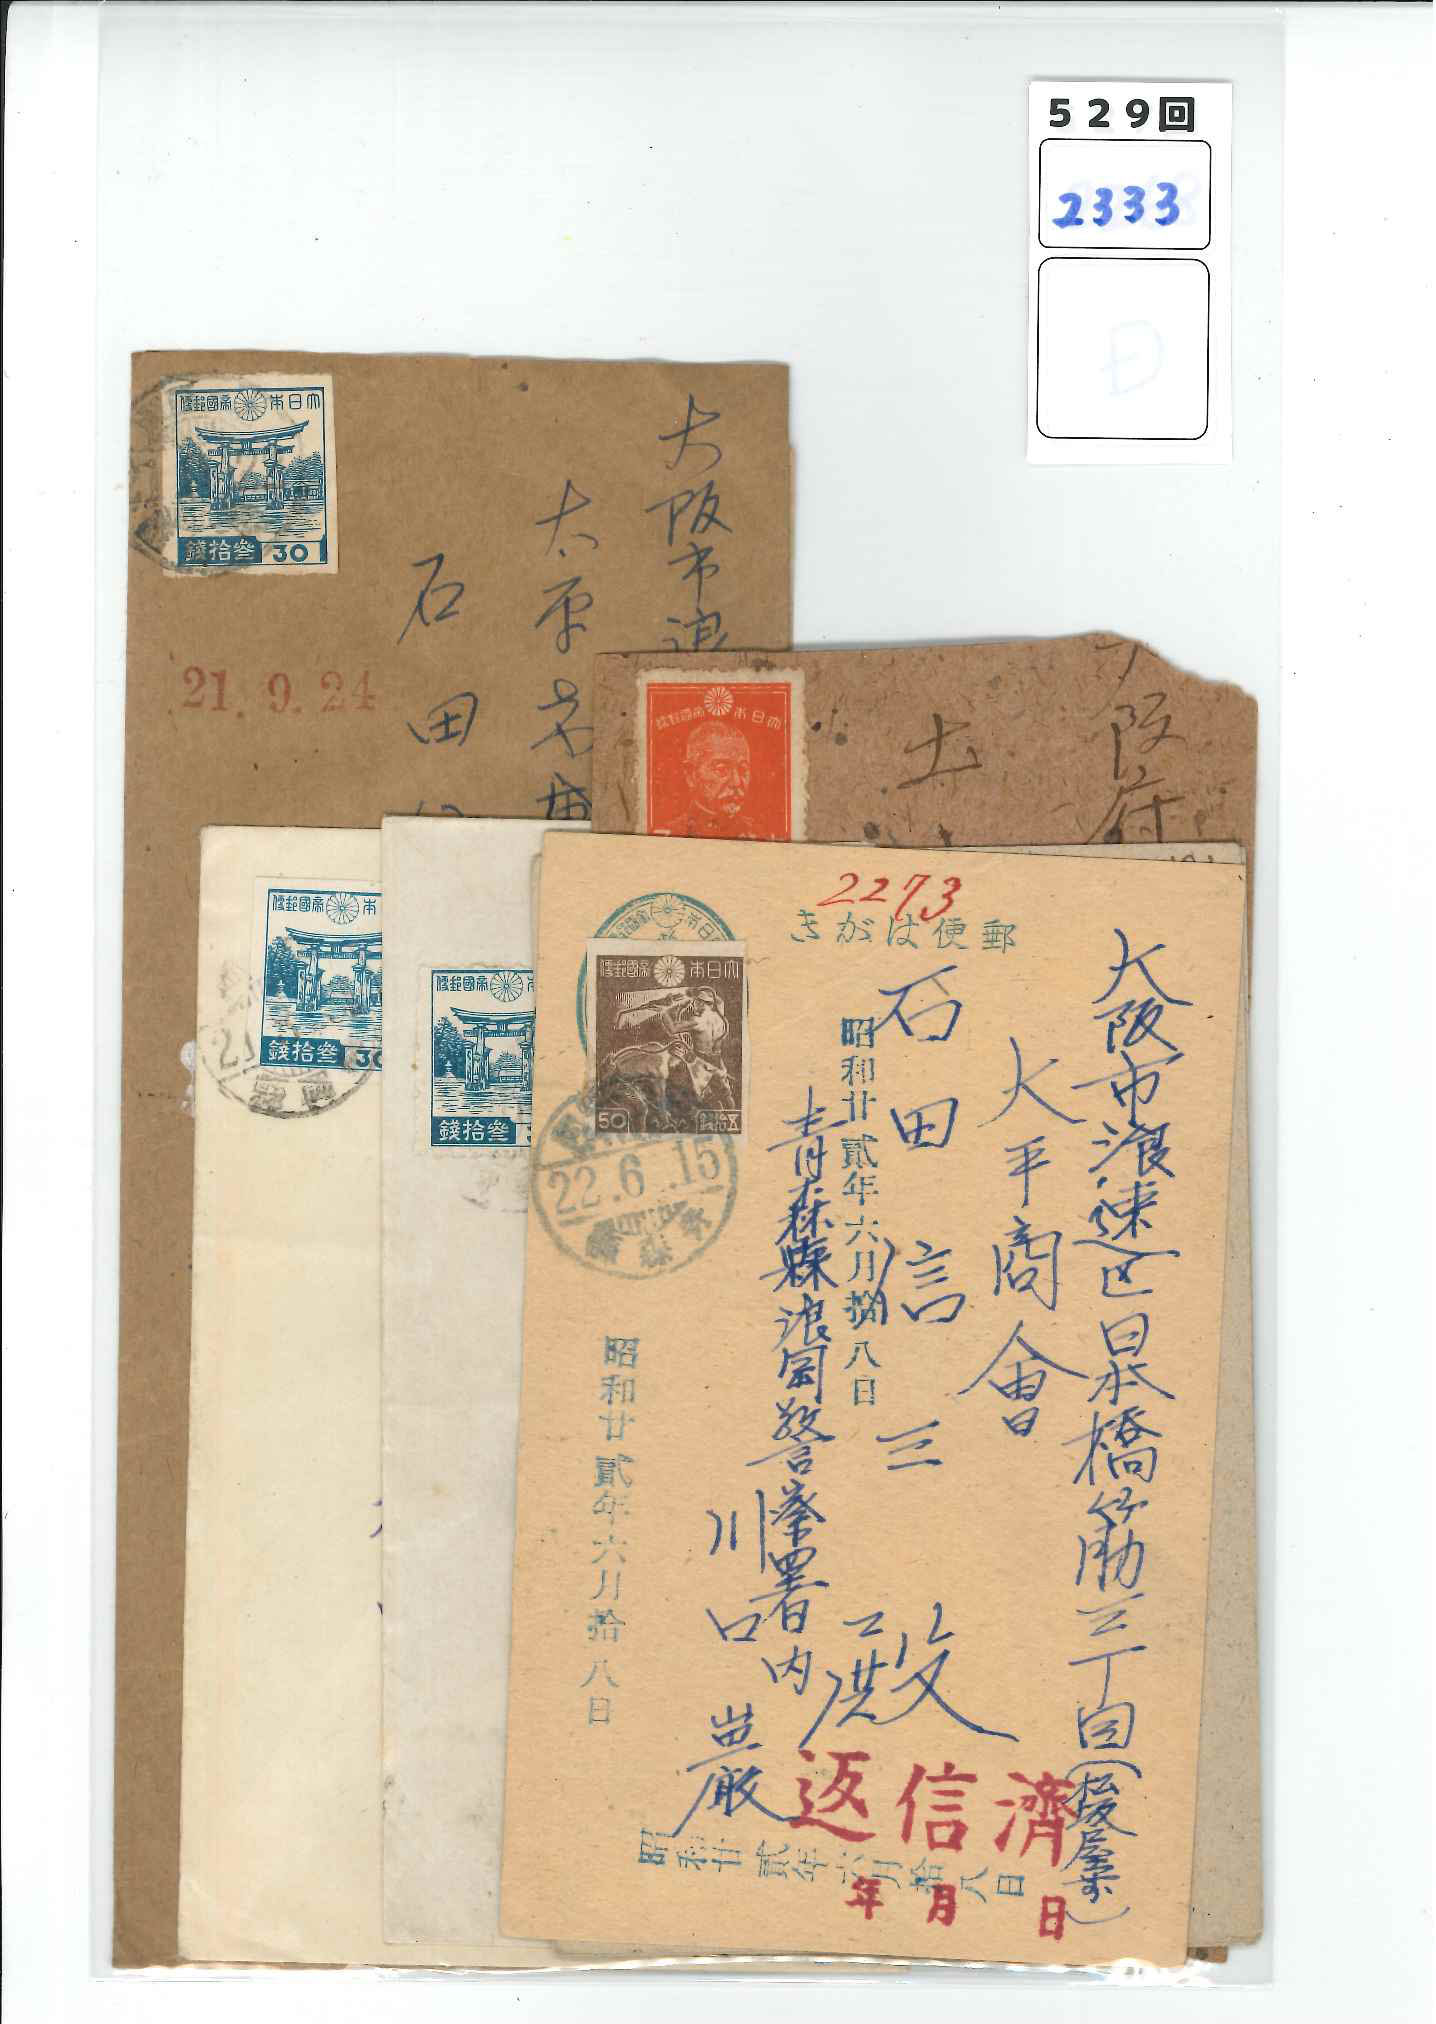 529回
2333
大日本帝國郵便
参拾錢 30
21.9.24
大阪市浪
石田
大日本帝國郵便
阪府
大日本帝國郵便
参拾錢 30
大日本帝國郵便
参拾錢
2273
郵便はがき
大日本帝國郵便
50 五拾錢
22.6.15
青森
大阪市浪速区日本橋筋三丁目(松坂屋前)
大平商會
石田信三殿
昭和廿貳年六月拾八日
青森縣浪岡警察署内
川口巖
昭和廿貳年六月拾八日
返信濟
昭和廿貳年六月拾八日
年 月 日